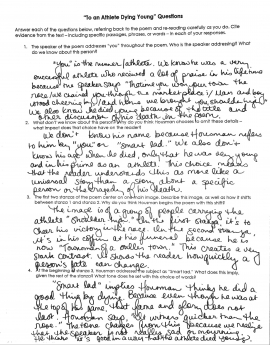 "To an Athlete Dying Young" Questions
Answer each of the questions below, referring back to the poem and re-reading carefully as you do. Cite
evidence from the text – including specific phrases, images, or words – in each of your responses.
1. The speaker of the poem addresses "you" throughout the poem. Who is the speaker addressing? What
do we know about "you"?
"You" is the runner/athlete. We know he was a very
successful athlete who received a lot of praise in his lifetime
because the speaker says "The time you won your town the
race/We chaired you through the market-place;/Man and boy
stood cheering by,/And home we brought you shoulder-high."
We also know he died young because of the title and
other discussion of his death in the poem.
2. What don't we know about this person? Why do you think Housman chooses to omit these details –
what impact does that choice have on the reader?
We don't know his name because Housman refers
to him by "you" or "smart lad." We also don't
know his age when he died, only that he was very young
and in his prime as an athlete. This choice means
that the reader understands this as more like a
universal story than a story about a specific
person or the tragedy of his death.
3. The first two stanzas of the poem center on one main image. Describe this image, as well as how it shifts
between stanza 1 and stanza 2. Why do you think Housman begins the poem with this shift?
The image is of a group of people carrying the
athlete "shoulder-high." In the first stanza, it's to
cheer his victory in the race. In the second stanza,
it's in his coffin at his funeral because he is
now "Townsman of a stiller town." This creates a very
stark contrast. It shows the reader how quickly a
person's fate can change.
4. At the beginning of stanza 3, Housman addresses the subject as "Smart lad." What does this imply
given the rest of the stanza? What tone does he set with this choice of words?
"Smart lad" implies Housman thinks he did a
good thing by dying because even though he was at
the top of his game, that fame and glory does not
last. Housman says "It withers quicker than the
rose." The tone changes from this because we realize
that the speaker is not really sad or mourning.
He thinks it's good in a way that the athlete died young.